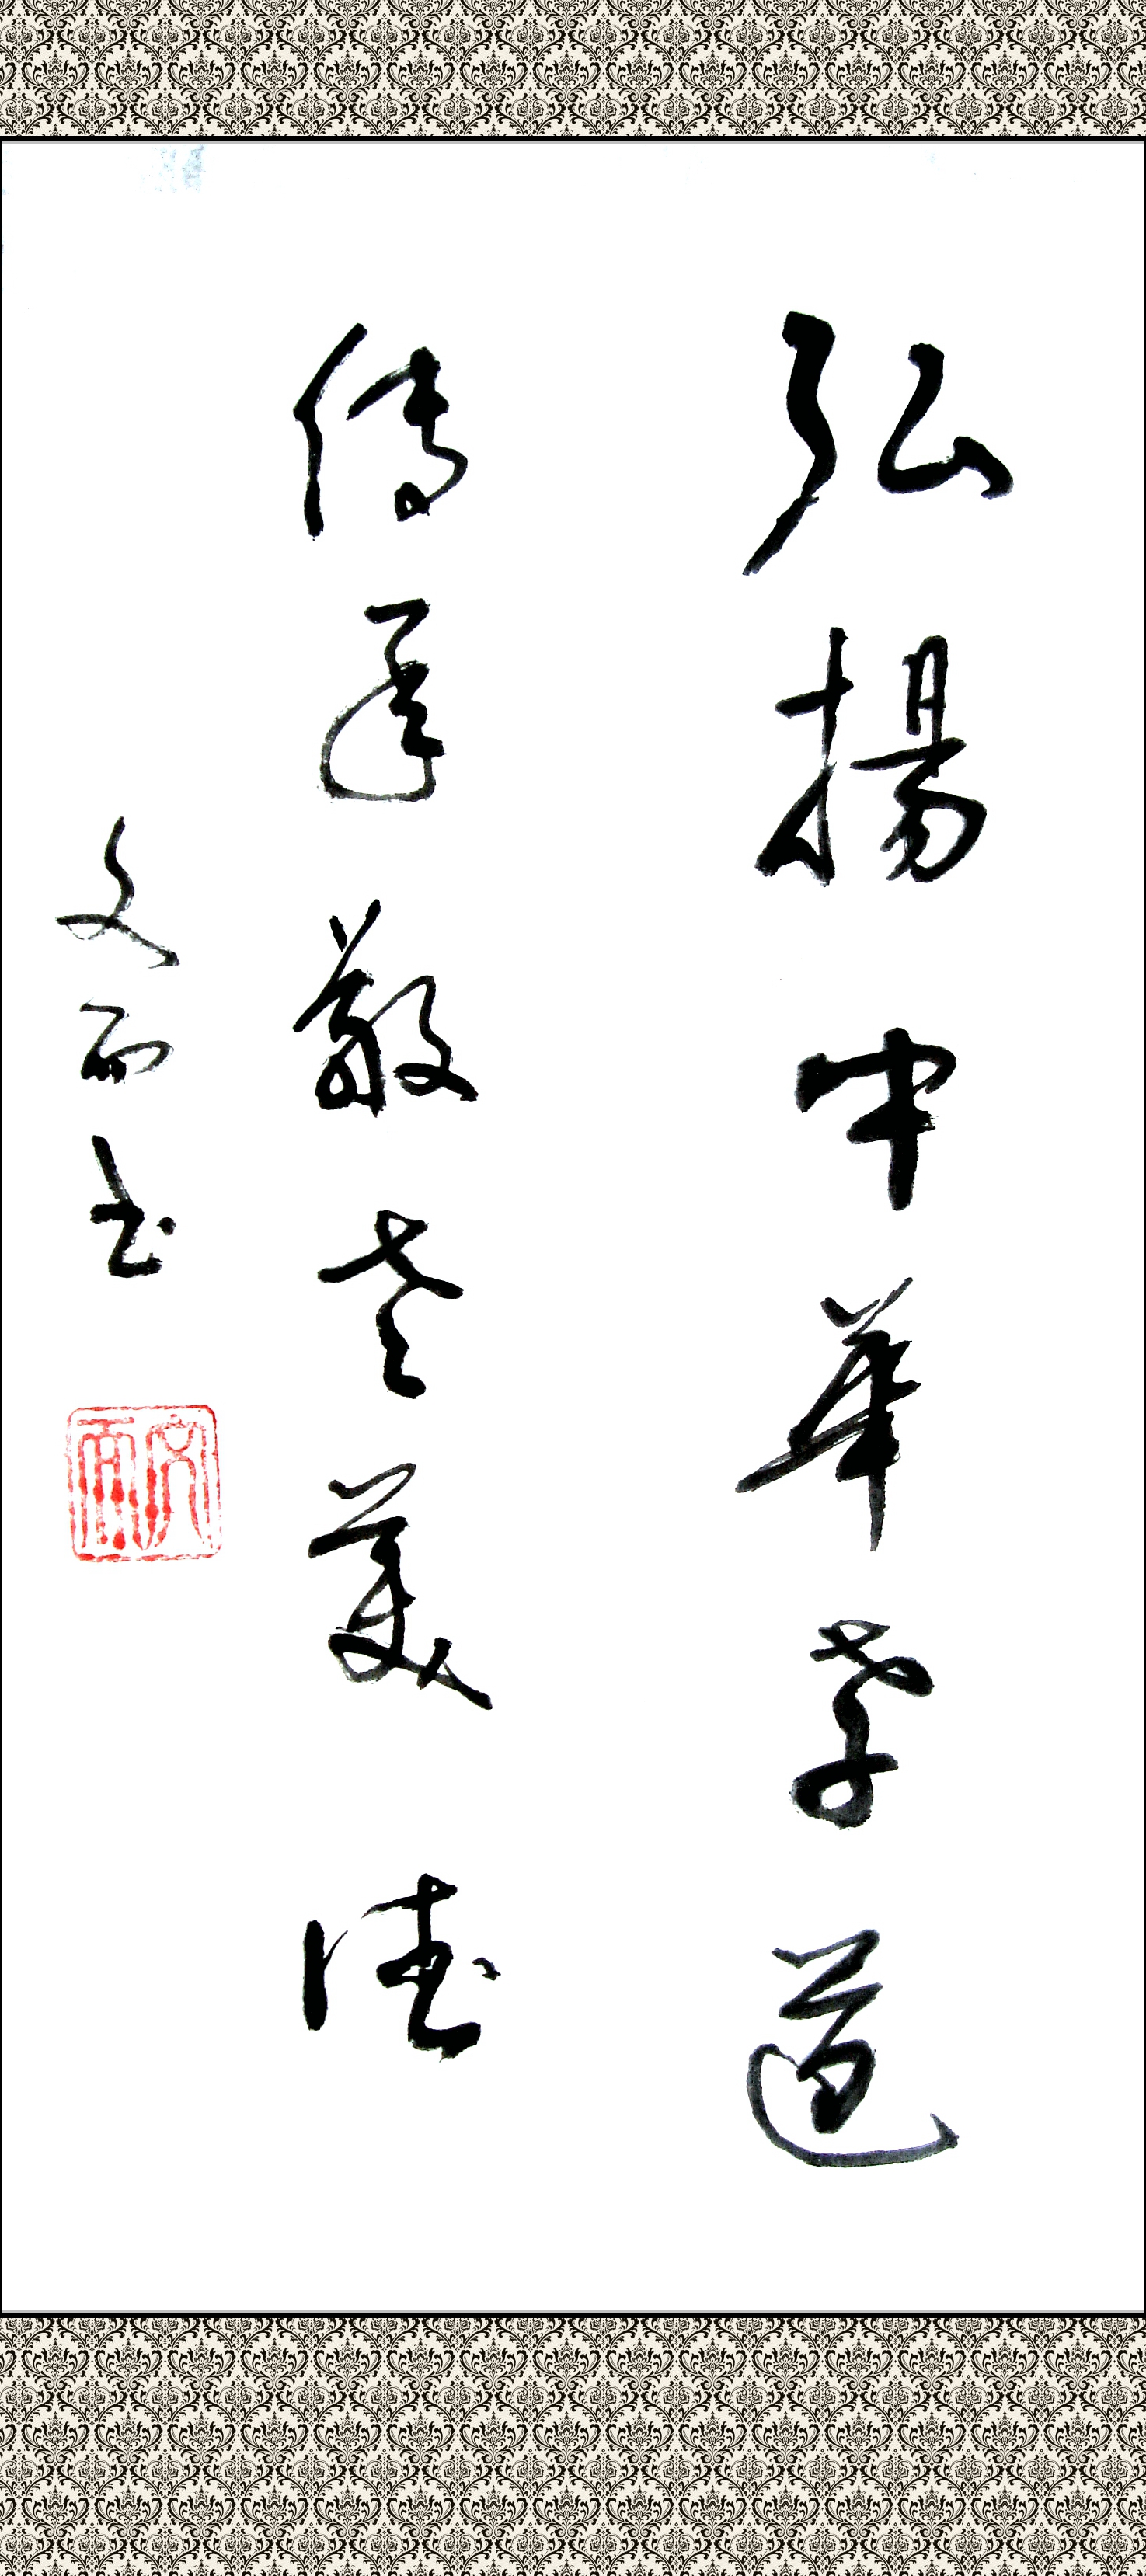 弘揚中華孝道
傳承敬老美德
文而书
文而